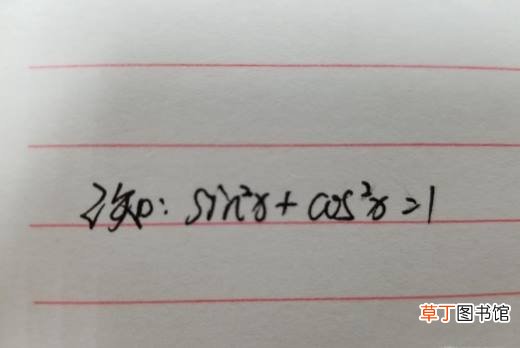 已知: sin²x + cos²x = 1
草丁图书馆